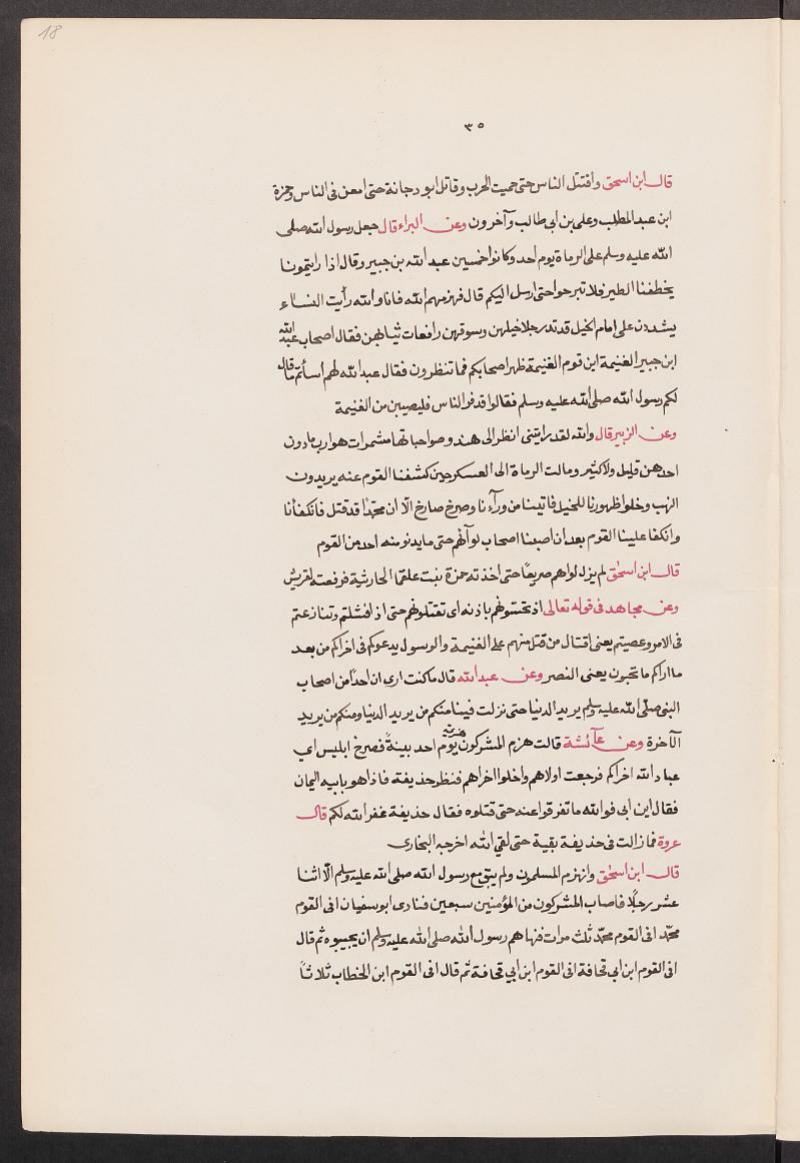 18
٣٥
قال ابن اسحق واقتتل الناس حتى حميت الحرب وقاتل ابو دجانة حتى امعن فى الناس وحمزة
ابن عبد المطلب وعلى بن ابي طالب وآخرون وعن البراء قال جعل رسول الله صلى
الله عليه وسلم على الرماة يوم احد وكانوا خمسين عبد الله بن جبير وقال اذا رايتمونا
يخطفنا الطير فلا تبرحوا حتى ارسل اليكم قال فهزمهم الله فانا والله رأيت النساء
يشددن على امام الخيل قد تدر جلاخيلهن وسوقهن رافعات ثيابهن فقال اصحاب عبد الله
ابن جبير الغنيمة اين قوم الغنيمة ظهر اصحابكم فما تنظرون فقال عبد الله لهم أسأتم ما قال
لكم رسول الله صلى الله عليه وسلم فقالوا قد فر الناس فليصيبن من الغنيمة
وعن الزبير قال والله لقد رايتنى انظر الى هند وصواحباتها مشمرات هوارب مادون
احدهن قليل ولا كثير ومالت الرماة الى العسكر حين كشفنا القوم عنه يريدون
النهب وخلوا ظهورنا للخيل فاتينا من ورآءنا وصرخ صارخ الا ان محمدا قد قتل فانكفأنا
وانكفا علينا القوم بعد ان اصبنا اصحاب لوآئهم حتى مايدنو منه احد من القوم
قال ابن اسحق لم يزل لواهم صريعا حتى اخذته حمزة بنت علقما الحارثية فرفعته لقريش
وعن مجاهد فى قوله تعالى اذ تحسونهم باذنه اى تقتلونهم حتى اذا فشلتم وتنازعتم
فى الامر وعصيتم يعنى اقتتال من قتل منهم على الغنيمة والرسول يدعوكم فى اخراكم من بعد
ما اراكم ما تحبون يعنى النصر وعن عبد الله قال ماكنت ارى ان احدا من اصحاب
النبى صلى الله عليه وسلم يريد الدنيا حتى نزلت فينا منكم من يريد الدنيا ومنكم من يريد
الآخرة وعن عآئشة قالت هزم المشركون يوم احد هزيمة بينة فصرخ ابليس اي
عباد الله اخراكم فرجعت اولاهم واخلوا اخراهم فنظر حذيفة فاذا هو بابيه اليمان
فقال ابى ابى فوالله ما تفرقوا عنه حتى قتلوه فقال حذيفة غفر الله لكم قال
عروة فما زالت فى حذيفة بقية حتى لقي الله اخرجه البخارى
قال ابن اسحق وانهزم المسلمون ولم يبق مع رسول الله صلى الله عليه وسلم الا اثنا
عشر رجلا فاصاب المشركون من المؤمنين سبعين فنادى ابو سفيان افى القوم
محمد افى القوم محمد ثلث مرات فنهاهم رسول الله صلى الله عليه وسلم ان يجيبوه ثم قال
افى القوم ابن ابى قحافة افى القوم ابن ابي قحافة ثم قال افى القوم ابن الخطاب ثلاثا